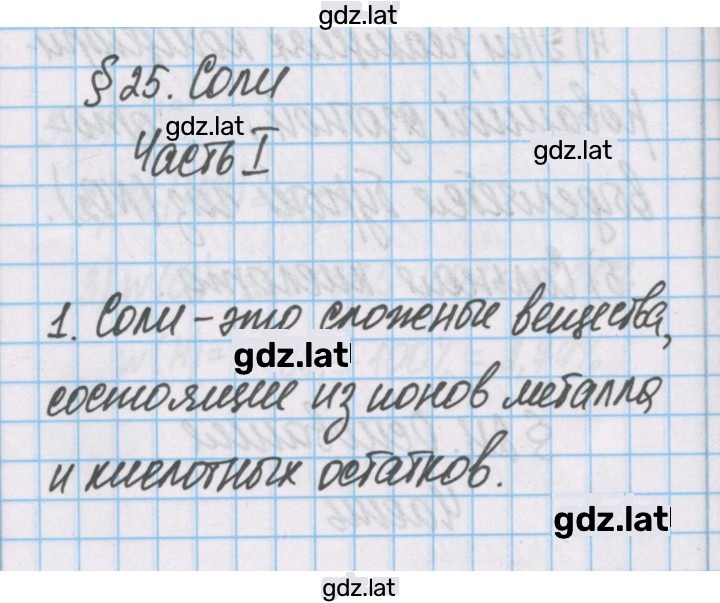 gdz.lat
§ 25. Соли
gdz.lat
Часть I
gdz.lat
1. Соли – это сложные вещества,
gdz.lat
состоящие из ионов металла
и кислотных остатков.
gdz.lat
gdz.lat